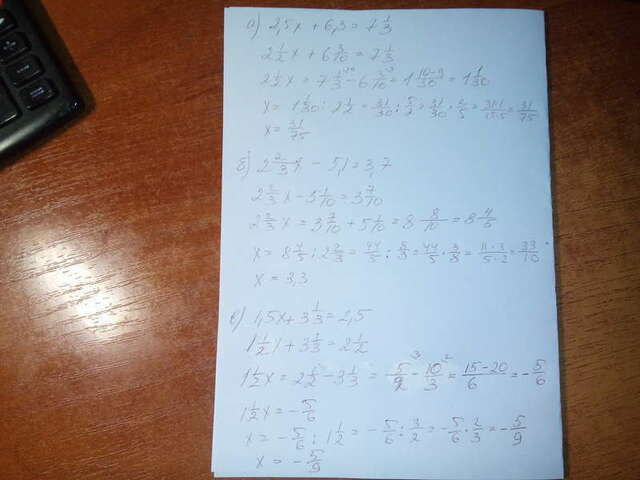 а) 2,5x + 6,3 = 7 1/3
2 1/2 x + 6 3/10 = 7 1/3
2 1/2 x = 7 1/3 - 6 3/10 = 1 10-9/30 = 1 1/30
x = 1 1/30 : 2 1/2 = 31/30 : 5/2 = 31/30 · 2/5 = 31·1/15·5 = 31/75
x = 31/75
б) 2 2/3 x - 5,1 = 3,7
2 2/3 x - 5 1/10 = 3 7/10
2 2/3 x = 3 7/10 + 5 1/10 = 8 8/10 = 8 4/5
x = 8 4/5 : 2 2/3 = 44/5 : 8/3 = 44/5 · 3/8 = 11·3/5·2 = 33/10
x = 3,3
в) 1,5x + 3 1/3 = 2,5
1 1/2 x + 3 1/3 = 2 1/2
1 1/2 x = 2 1/2 - 3 1/3 = 5/2 ³ - 10/3 ² = 15-20/6 = - 5/6
1 1/2 x = - 5/6
x = - 5/6 : 1 1/2 = - 5/6 : 3/2 = - 5/6 · 2/3 = - 5/9
x = - 5/9